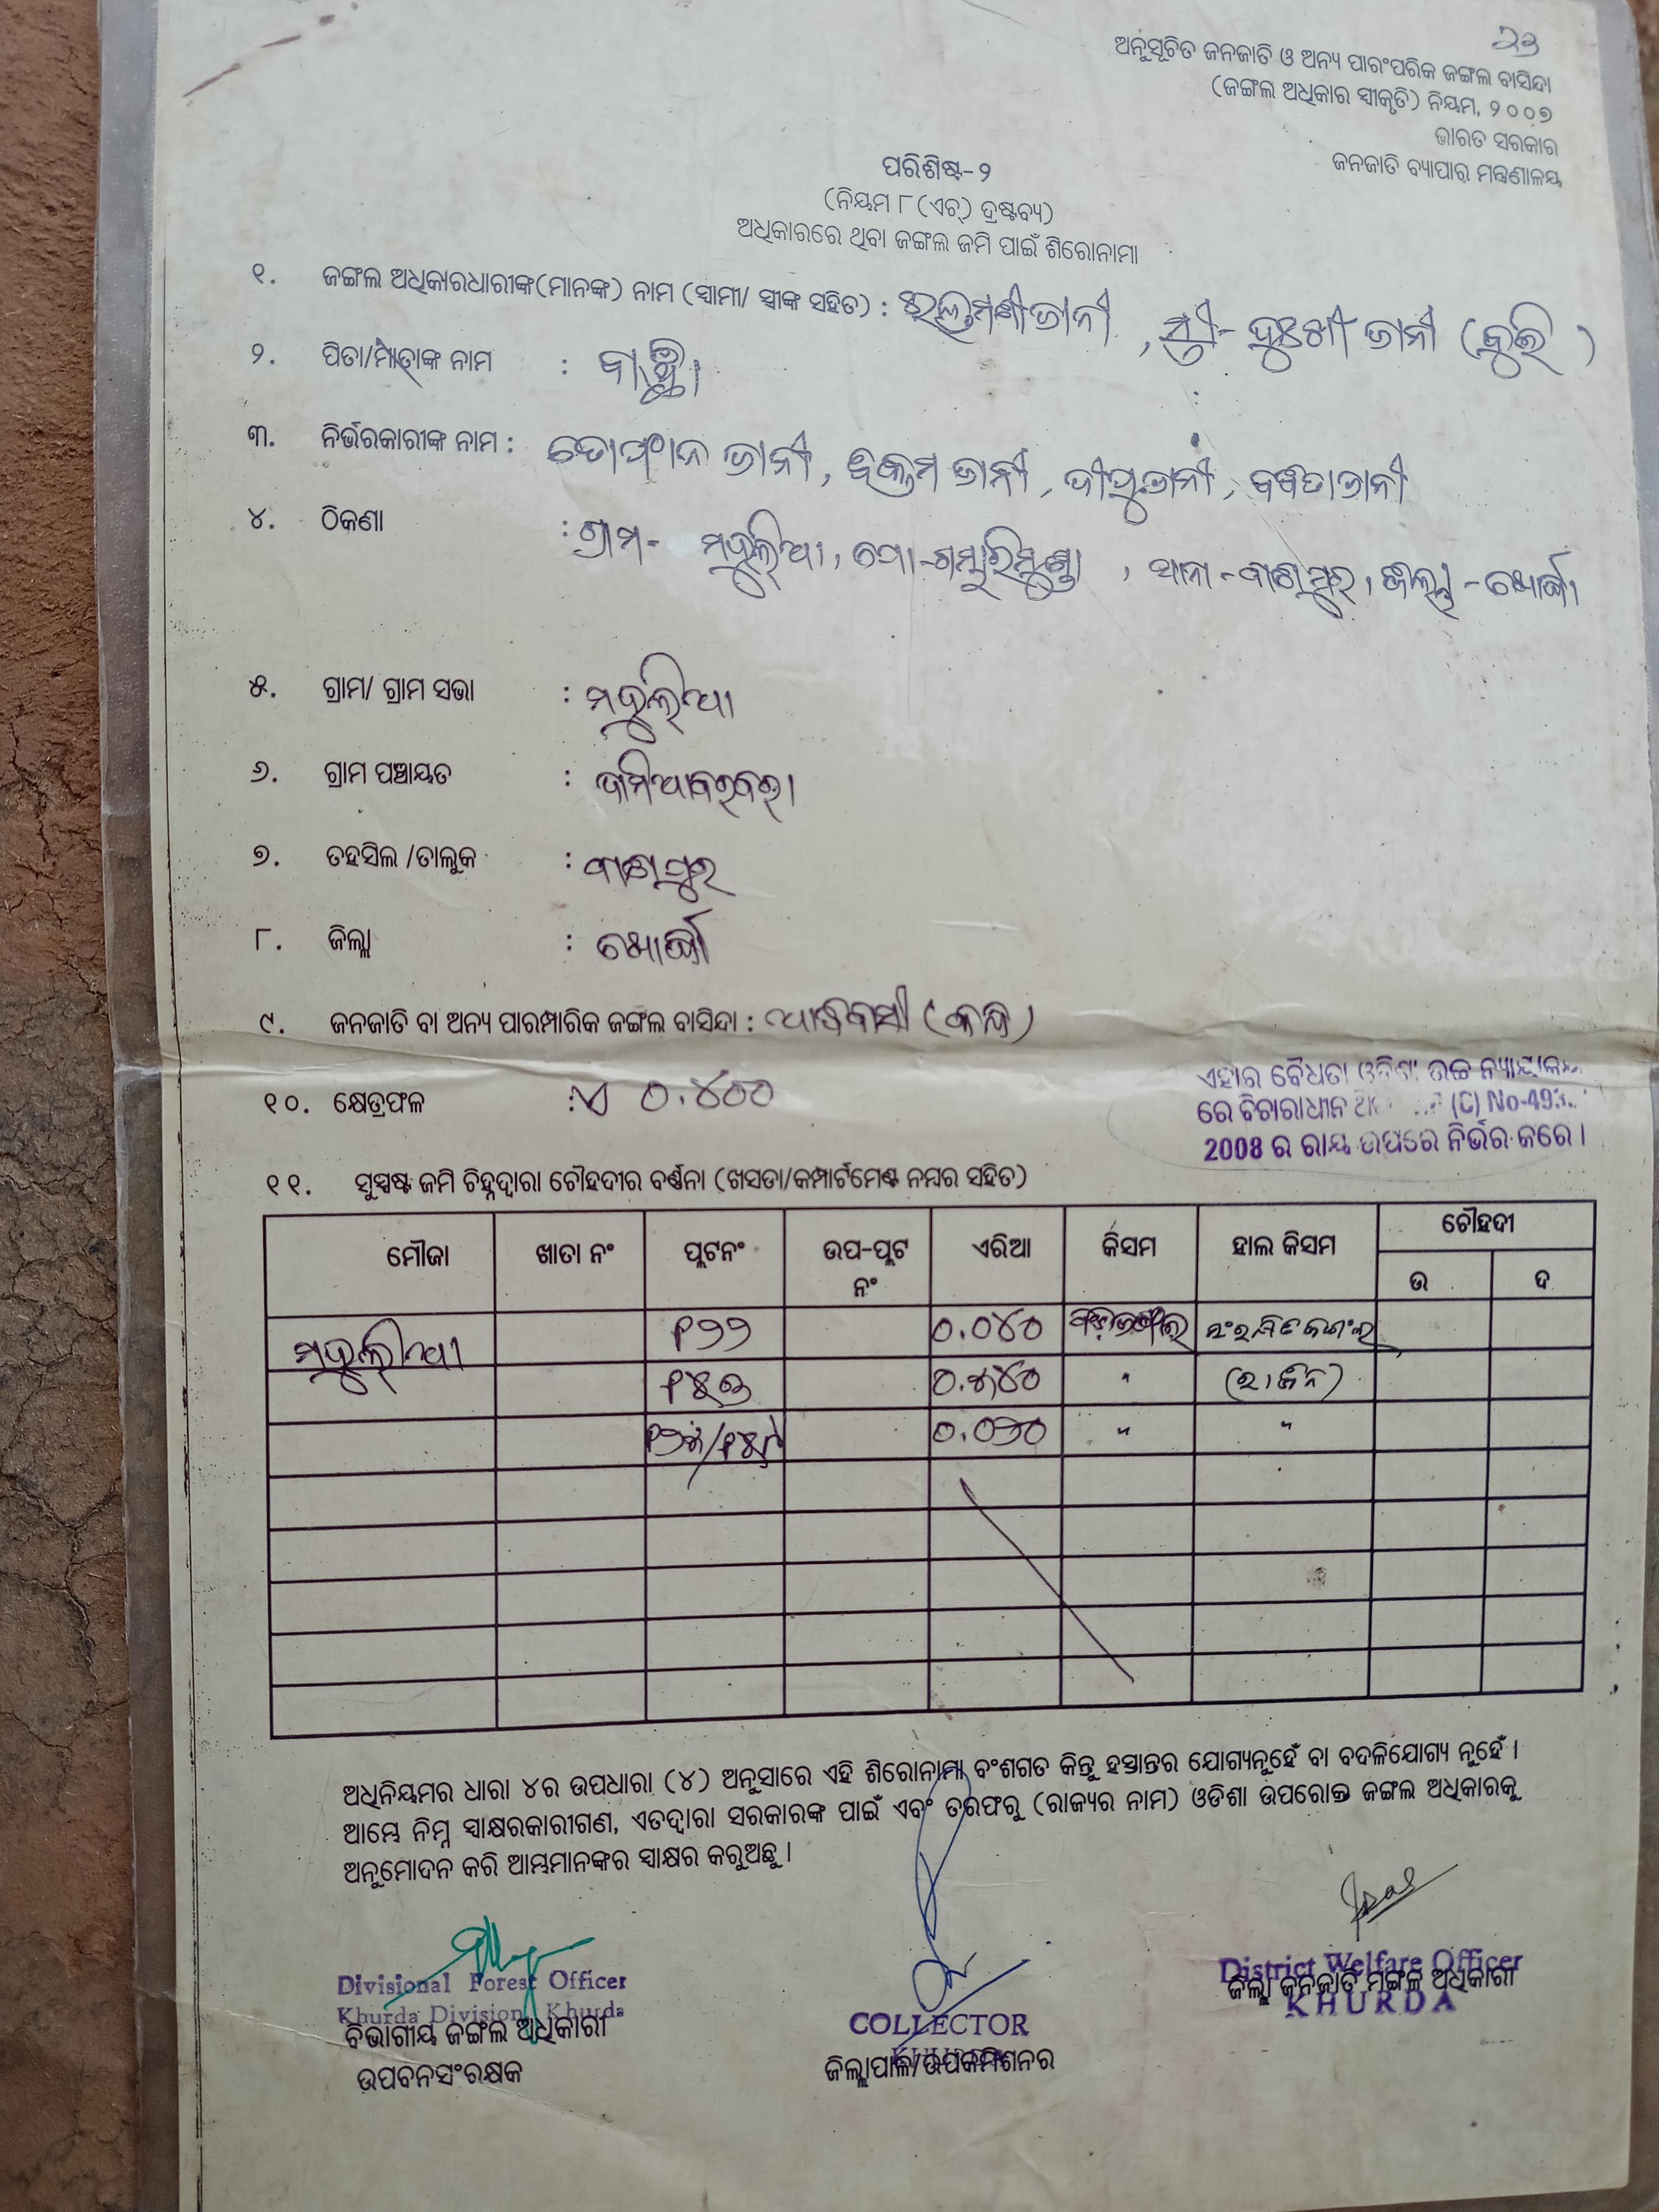 ୨୬
ଅନୁସୂଚିତ ଜନଜାତି ଓ ଅନ୍ୟ ପାରଂପରିକ ଜଙ୍ଗଲ ବାସିନ୍ଦା
(ଜଙ୍ଗଲ ଅଧିକାର ସ୍ୱୀକୃତି) ନିୟମ, ୨୦୦୭
ଭାରତ ସରକାର
ଜନଜାତି ବ୍ୟାପାର ମନ୍ତ୍ରଣାଳୟ
ପରିଶିଷ୍ଟ-୨
(ନିୟମ ୮(ଏଚ୍) ଦ୍ରଷ୍ଟବ୍ୟ)
ଅଧିକାରରେ ଥିବା ଜଙ୍ଗଲ ଜମି ପାଇଁ ଶିରୋନାମା
୧. ଜଙ୍ଗଲ ଅଧିକାରଧାରୀଙ୍କ(ମାନଙ୍କ) ନାମ (ସ୍ୱାମୀ/ ସ୍ତ୍ରୀଙ୍କ ସହିତ) : , ସ୍ତ୍ରୀ- ଦୁଃଖୀ ଜାନୀ
୨. ପିତା/ମାତାଙ୍କ ନାମ :
୩. ନିର୍ଭରକାରୀଙ୍କ ନାମ : ଜାନୀ, ଜାନୀ, ଜାନୀ, ଜାନୀ
୪. ଠିକଣା : ଗ୍ରାମ- ମହୁଲିଆ, ପୋ-ଗମ୍ଭାରିମୁଣ୍ଡା, ଥାନା-ବାଣପୁର, ଜିଲ୍ଲା-ଖୋର୍ଦ୍ଧା
୫. ଗ୍ରାମ/ ଗ୍ରାମ ସଭା : ମହୁଲିଆ
୬. ଗ୍ରାମ ପଞ୍ଚାୟତ :
୭. ତହସିଲ /ତାଲୁକ : ବାଣପୁର
୮. ଜିଲ୍ଲା : ଖୋର୍ଦ୍ଧା
୯. ଜନଜାତି ବା ଅନ୍ୟ ପାରମ୍ପାରିକ ଜଙ୍ଗଲ ବାସିନ୍ଦା : ଆଦିବାସୀ (କନ୍ଧ)
୧୦. କ୍ଷେତ୍ରଫଳ : ଏ ୦.୪୦୦
ଏହାର ବୈଧତା ଓଡିଶା ଉଚ୍ଚ ନ୍ୟାୟାଳୟ
ରେ ବିଚାରାଧୀନ (C) No-49
2008 ର ରାୟ ଉପରେ ନିର୍ଭର କରେ।
୧୧. ସୁସ୍ପଷ୍ଟ ଜମି ଚିହ୍ନଦ୍ୱାରା ଚୌହଦୀର ବର୍ଣ୍ଣନା (ଖସଡା/କମ୍ପାର୍ଟମେଣ୍ଟ ନମ୍ବର ସହିତ)
ମୌଜା ଖାତା ନଂ ପ୍ଲଟନଂ ଉପ-ପ୍ଲଟ ନଂ ଏରିଆ କିସମ ହାଲ କିସମ ଚୌହଦୀ
ଉ ଦ
ମହୁଲିଆ ୦.୦୪୦
୦.୩୪୦ "
୦.୦୨୦ " "
ଅଧିନିୟମର ଧାରା ୪ର ଉପଧାରା (୪) ଅନୁସାରେ ଏହି ଶିରୋନାମା ବଂଶଗତ କିନ୍ତୁ ହସ୍ତାନ୍ତର ଯୋଗ୍ୟନୁହେଁ ବା ବଦଳିଯୋଗ୍ୟ ନୁହେଁ ।
ଆମ୍ଭେ ନିମ୍ନ ସ୍ୱାକ୍ଷରକାରୀଗଣ, ଏତଦ୍ୱାରା ସରକାରଙ୍କ ପାଇଁ ଏବଂ ତରଫରୁ (ରାଜ୍ୟର ନାମ) ଓଡିଶା ଉପରୋକ୍ତ ଜଙ୍ଗଲ ଅଧିକାରକୁ
ଅନୁମୋଦନ କରି ଆମ୍ଭମାନଙ୍କର ସ୍ୱାକ୍ଷର କରୁଅଛୁ ।
Divisional Forest Officer
Khurda Division, Khurda
ବିଭାଗୀୟ ଜଙ୍ଗଲ ଅଧିକାରୀ
ଉପବନସଂରକ୍ଷକ
COLLECTOR
KHURDA
ଜିଲ୍ଲାପାଳ/ଉପକମିଶନର
District Welfare Officer
ଜିଲ୍ଲା ଜନଜାତି ମଙ୍ଗଳ ଅଧିକାରୀ
KHURDA